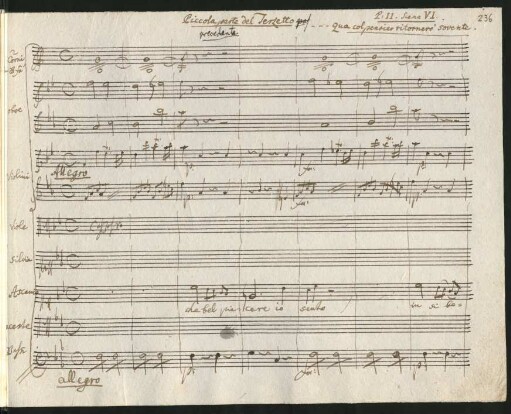 Piccola parte del Terzetto
precedente
P: II. Scena VI.
236
qua col pensier ritornerò sovente.
Corni
oboe
Allegro
Violini
Viole
Silvia
Ascanio
dabel piacere io sento
in sì bo-
Bassi
allegro